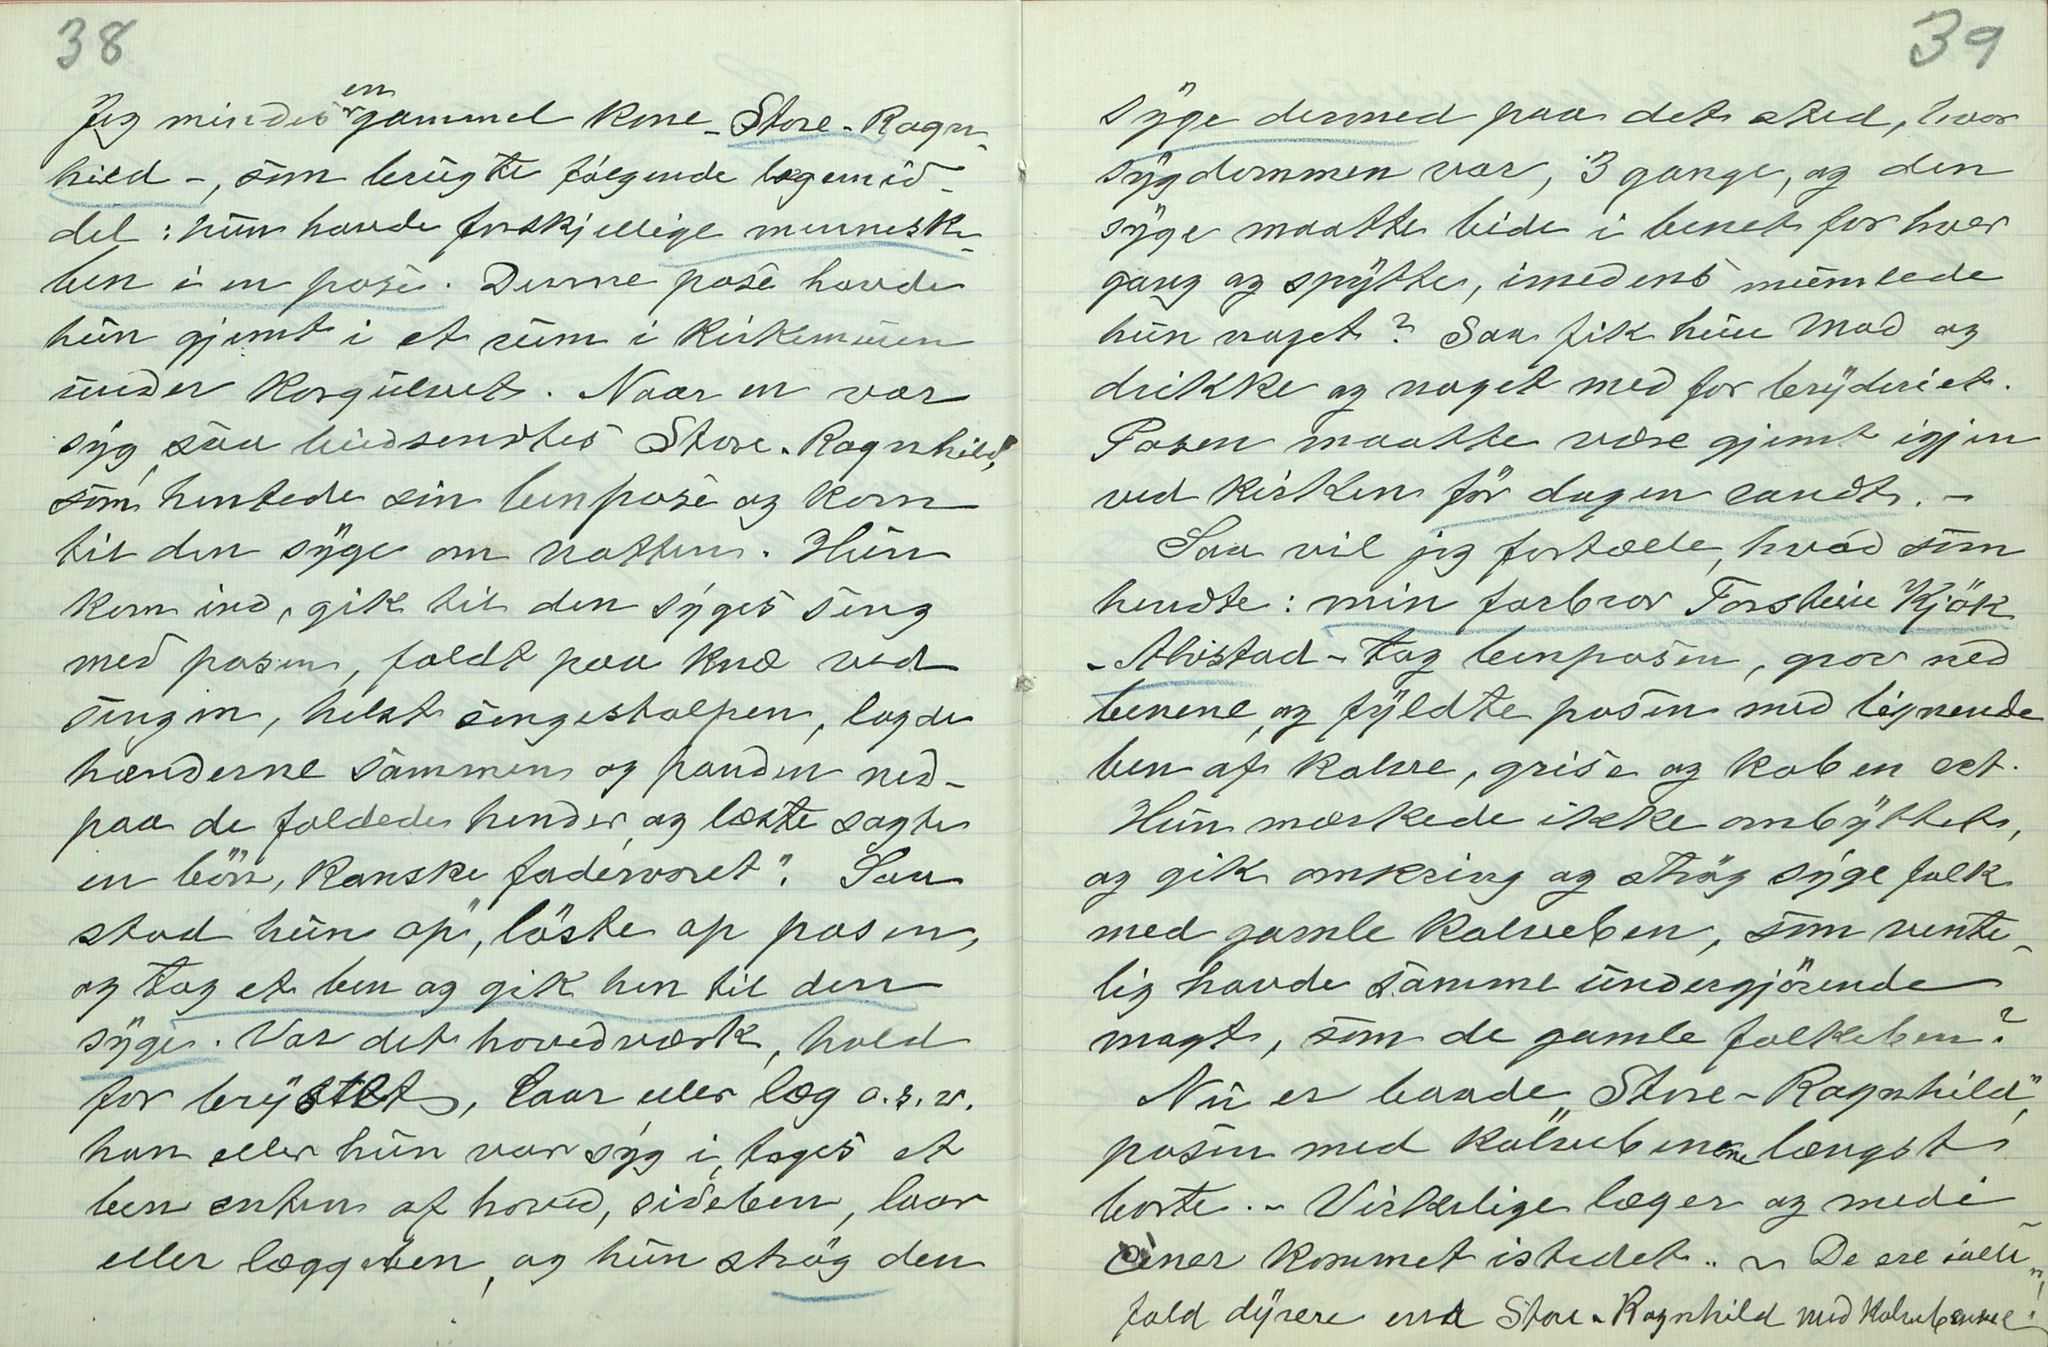 38
Jeg mindes en gammel kone - Store-Ragn-
hild -, som brugte følgende lægemid-
del: hun havde forskjellige menneske-
ben i en pose. Denne pose havde
hun gjemt i et rum i kirkemuren
under korgulvet. Naar en var
syg, saa budsendtes Store-Ragnhild,
som hentede sin benpose og kom
til den syge om natten. Hun
kom ind, gik til den syges seng
med posen, faldt paa knæ ved
sengen, helst sengestolpen, lagde
hænderne sammen og panden ned-
paa de foldede hender, og læste sagte
en bön, kanske fadervoret". Saa
stod hun op", löste op posen,
og tog et ben og gik hen til den
syge. Var det hovedværk, hold
for brystet, laar eller læg o.s.v.
han eller hun var syg i, toges et
ben enten af hoved, sideben, laar
eller læggeben, og hun strög den
39
syge dermed paa det sted, hvor
sygdommen var, 3 gange, og den
syge maatte bide i benet for hver
gang og spytte, imedens mumlede
hun noget? Saa fik hun mad og
drikke og noget med for bryderiet.
Posen maatte være gjemt igjen
ved kirken för dagen randt. -
Saa vil jeg fortælle, hvad som
hendte: min farbror Torstein Kjök
- Alvstad - tog benposen, grov ned
benene, og fyldte posen med lignende
ben af kalve, grise og koben ect.
Hun mærkede ikke ombyttet,
og gik omkring og strög syge folk
med gamle kalveben, som vente-
lig havde samme undergjörende
magt, som de gamle folkeben?
Nu er baade "Store-Ragnhild",
posen med kalvebenene længst
borte. - Virkelige læger og medi
ciner kommet istedet. ~ De ere ialle-
fald dyrere end Store-Ragnhild med kalvebenene!